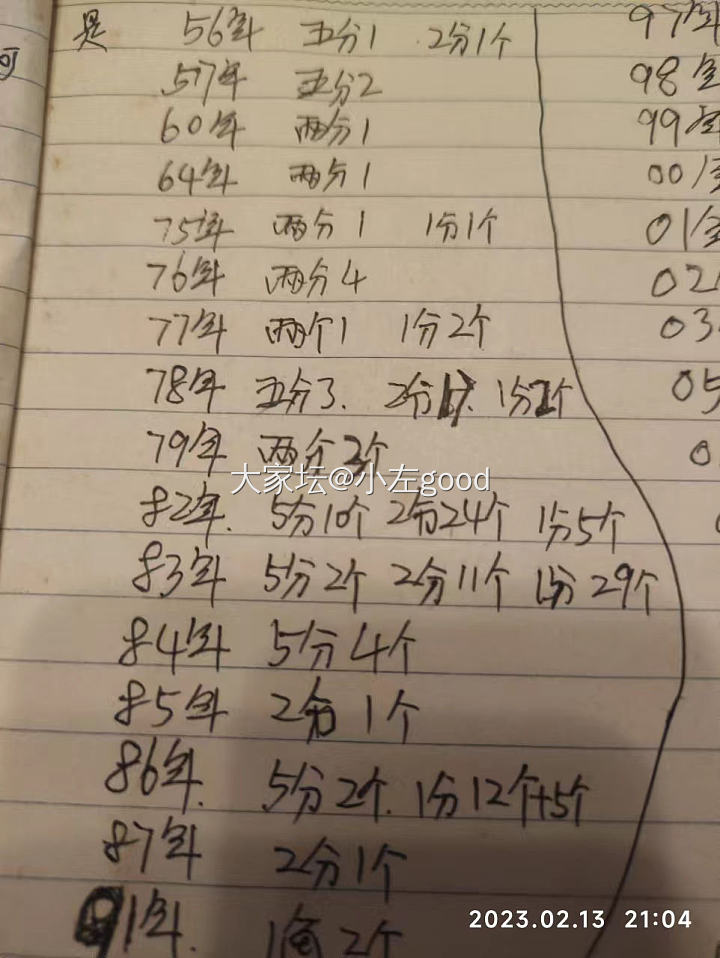 是 56年 五分1 2分1个
57年 五分2
60年 两分1
64年 两分1
75年 两分1 1分1个
76年 两分4
77年 两个1 1分2个
78年 五分3. 2分 1分 个
79年 两分 个
大家坛@小左good
82年. 5分10个 2分24个 1分5个
83年 5分2个 2分11个 1分29个
84年 5分4个
85年 2分1个
86年. 5分2个. 1分12个+5个
87年 2分1个
91年. 1角2个
97年
98
99
00
01
02
03
05
0
可
2023.02.13 21:04